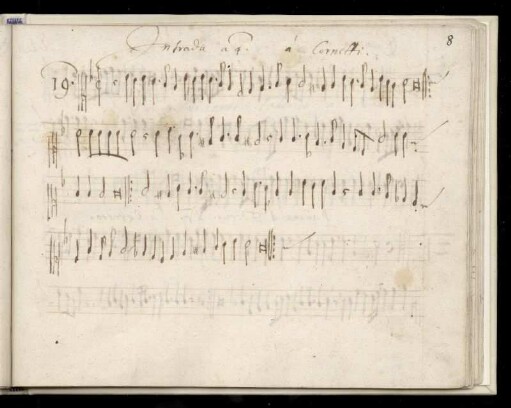 8
Intrada a 4. á Cornetti.
19.